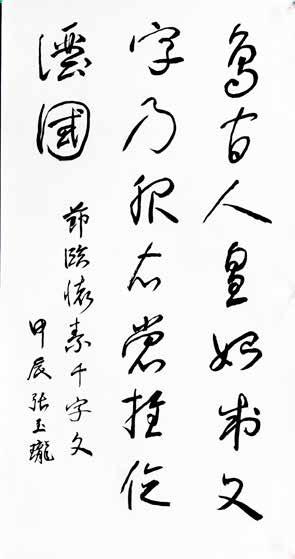 鸟官人皇始制文
字乃服衣裳推位
让国
节临怀素千字文
甲辰张玉瓏